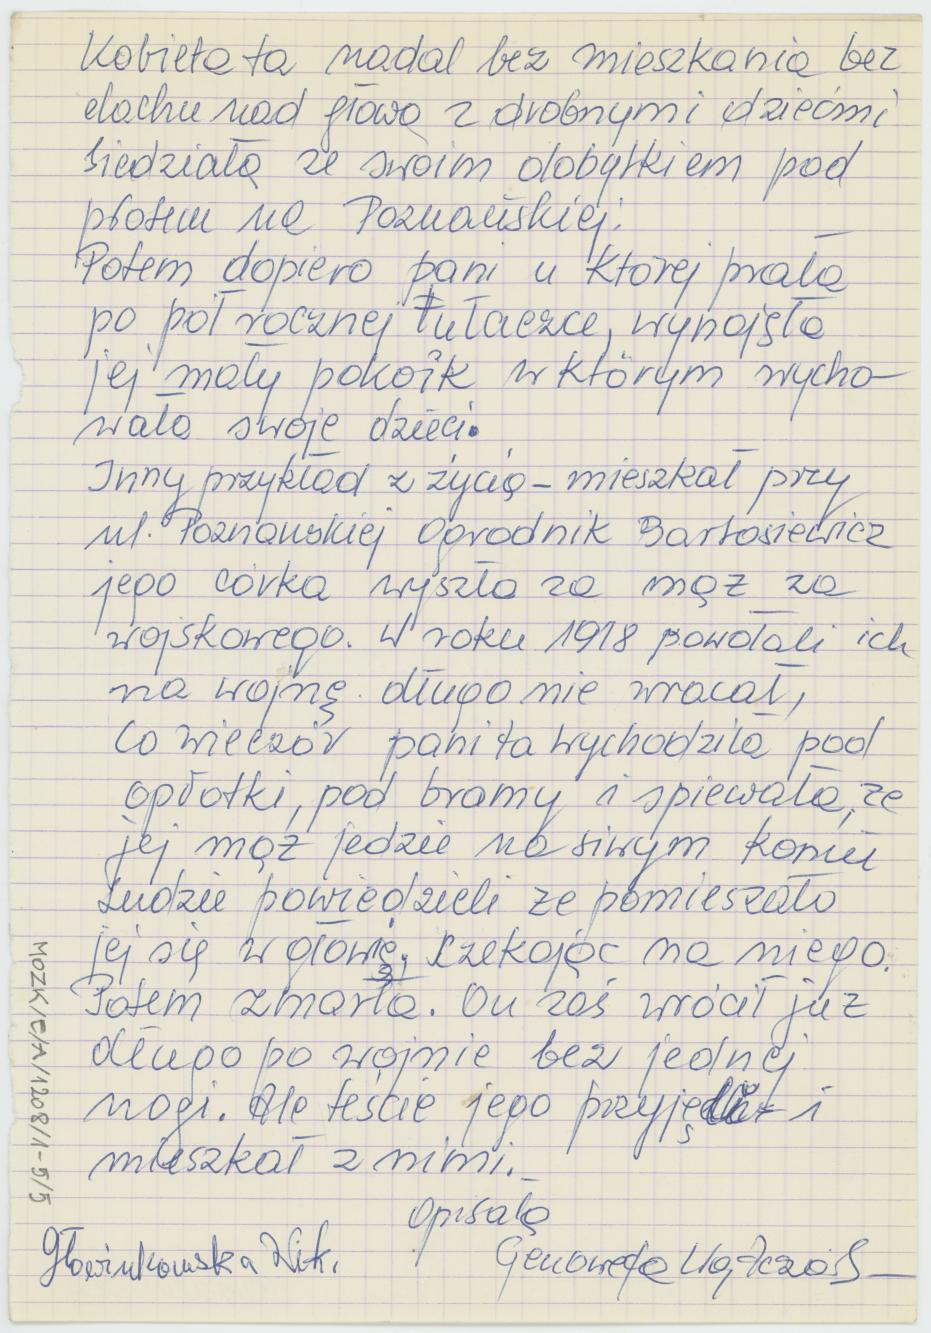 Kobieta ta nadal bez mieszkania bez
dachu nad głową z drobnymi dziećmi
siedziała ze swoim dobytkiem pod
płotem na Poznańskiej.
Potem dopiero pani u której prała
po pół rocznej tułaczce, wynajęła
jej mały pokoik w którym wycho-
wała swoje dzieci.
Inny przykład z życia - mieszkał przy
ul. Poznańskiej Ogrodnik Bartosiewicz
jego córka wyszła za mąż za
wojskowego. W roku 1918 powołali ich
na wojnę. długo nie wracał,
Co wieczór pani ta wychodziła pod
opłotki, pod bramy i śpiewała, że
jej mąż jedzie na siwym koniu
Ludzie powiedzieli że pomieszało
jej się w głowie, czekając na niego.
Potem zmarła. On zaś wrócił już
długo po wojnie bez jednej
nogi. Ale teście jego przyjęli i
mieszkał z nimi.
Opisała
Genowefa
MOZK/E/A/1208/1-5/5